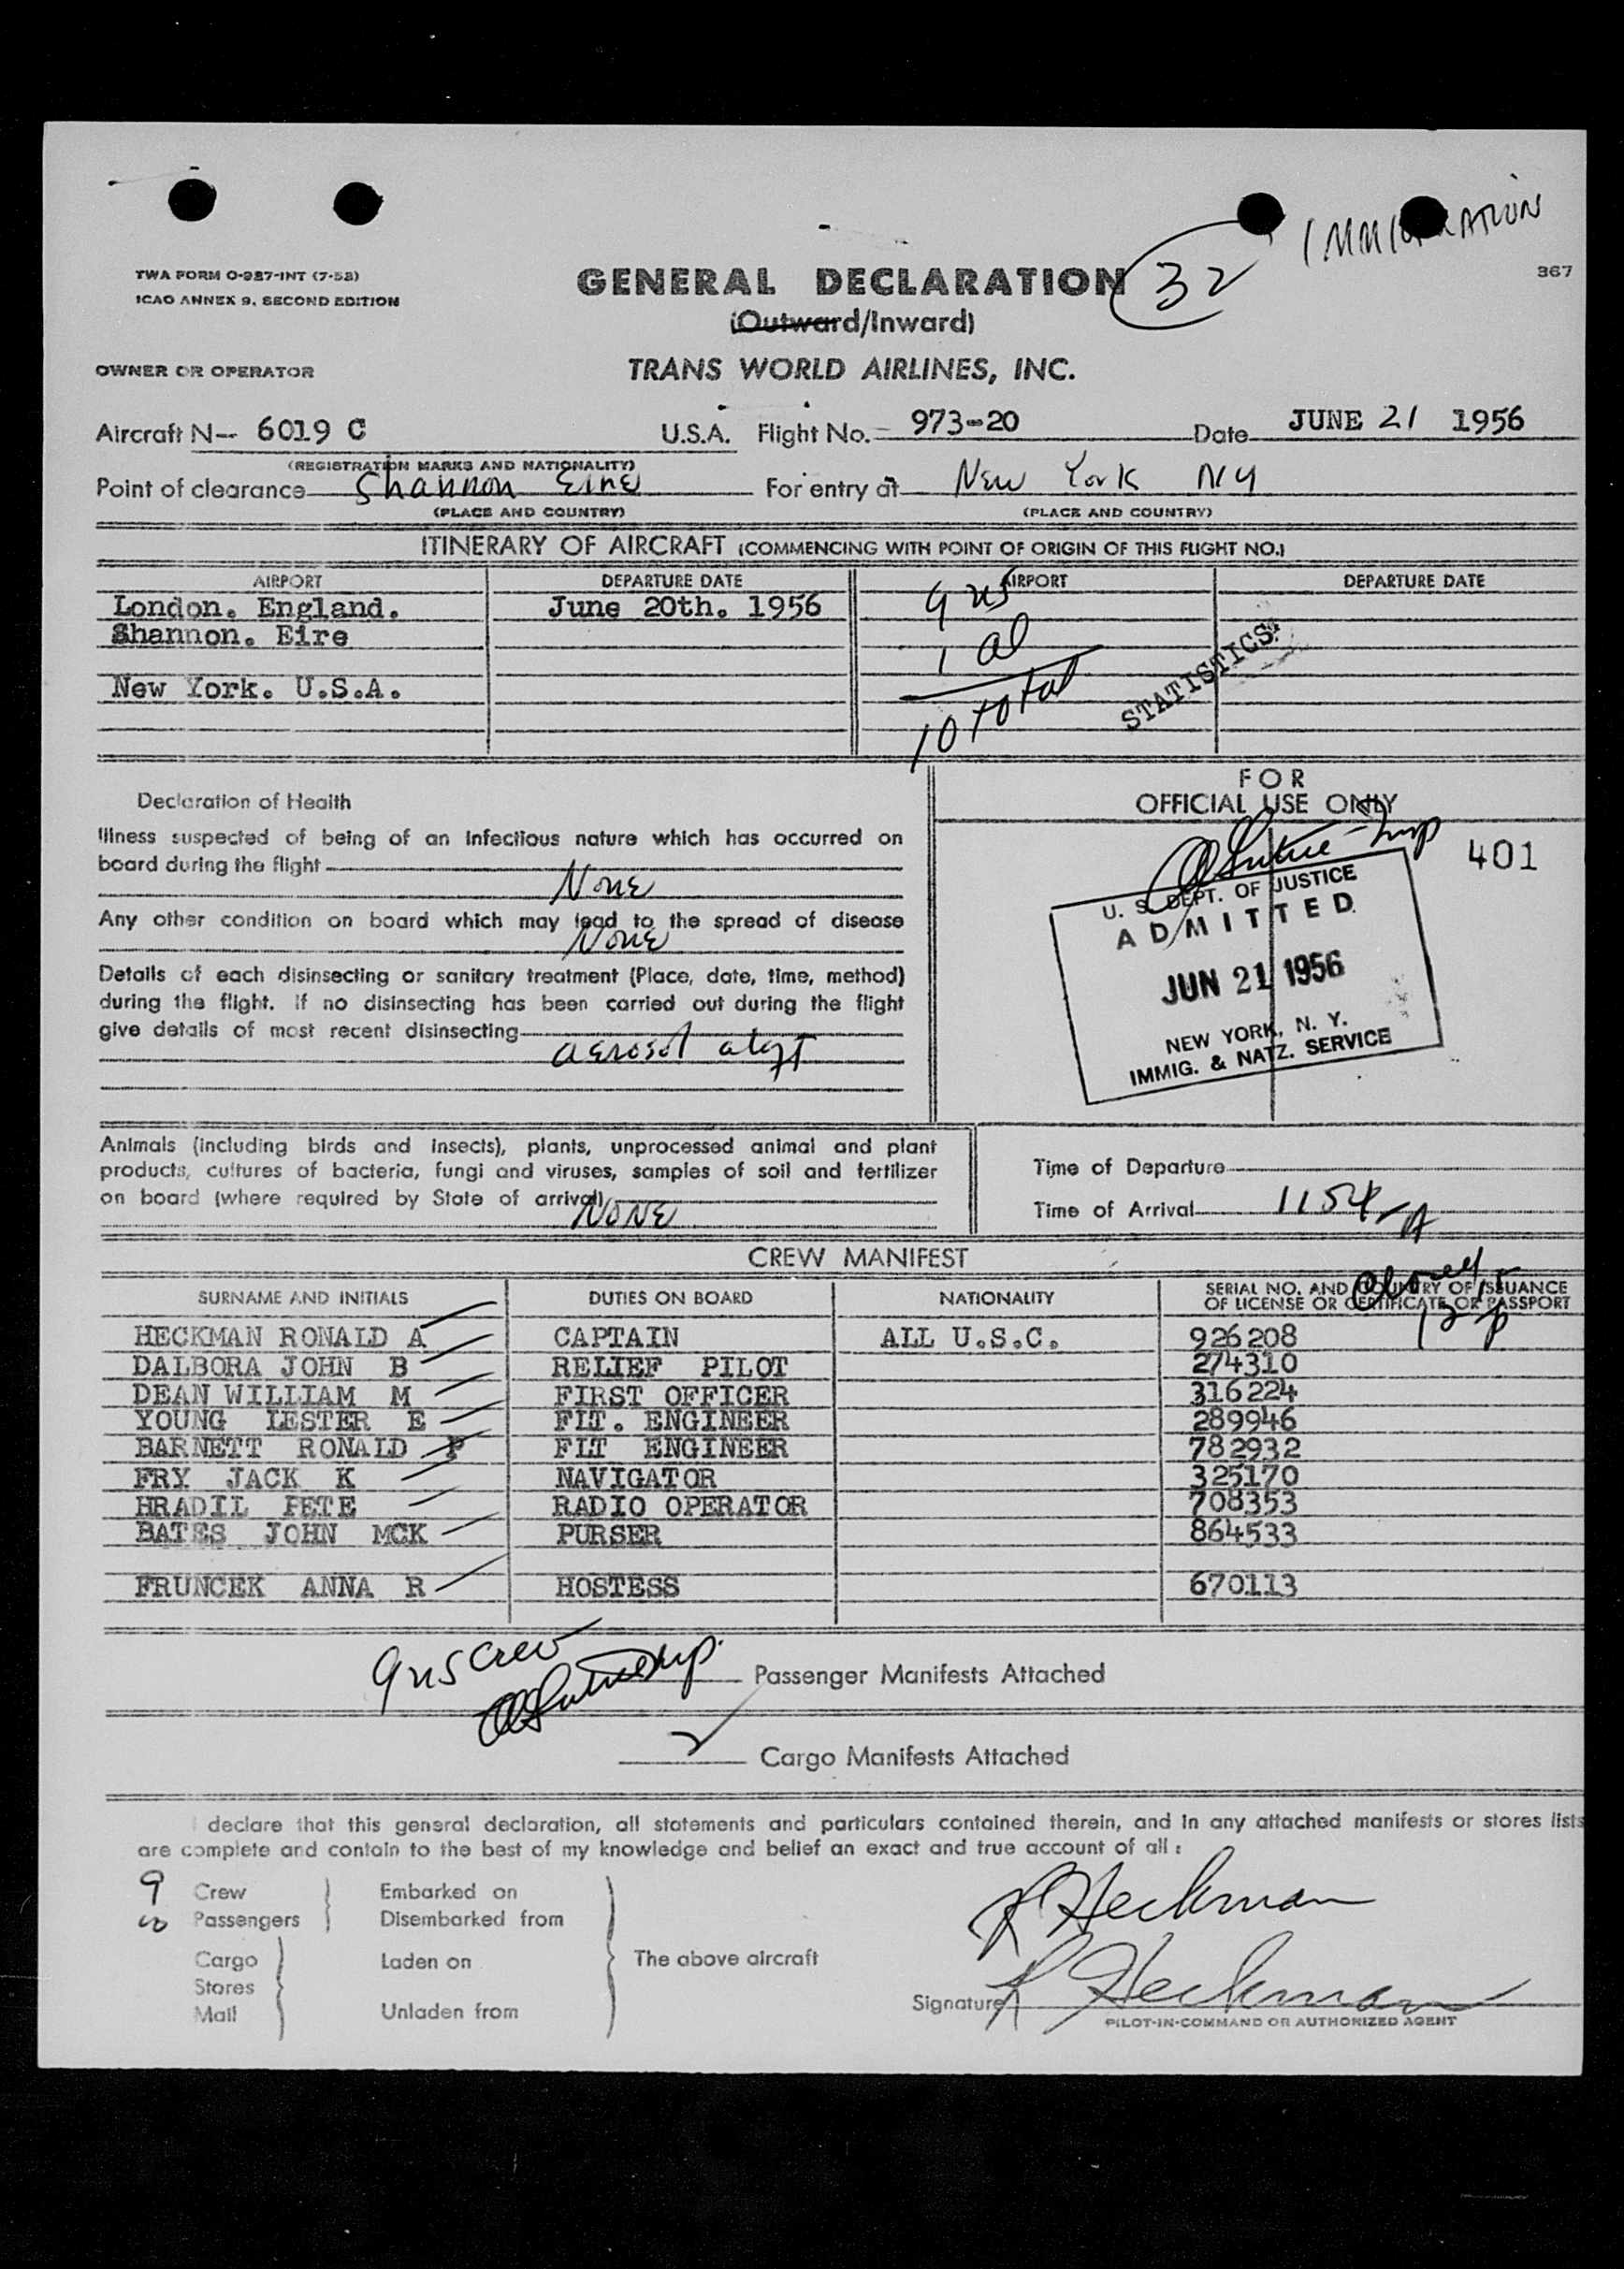 IMMIGRATION
32
367
TWA FORM O-927-INT (7-53)
ICAO ANNEX 9, SECOND EDITION
GENERAL DECLARATION
(Outward/Inward)
OWNER OR OPERATOR
TRANS WORLD AIRLINES, INC.
Aircraft N-- 6019 C U.S.A. Flight No. 973-20 Date JUNE 21 1956
(REGISTRATION MARKS AND NATIONALITY)
Point of clearance Shannon Eire For entry at New York NY
(PLACE AND COUNTRY) (PLACE AND COUNTRY)
ITINERARY OF AIRCRAFT (COMMENCING WITH POINT OF ORIGIN OF THIS FLIGHT NO.)
AIRPORT DEPARTURE DATE AIRPORT DEPARTURE DATE
London. England. June 20th. 1956
Shannon. Eire
New York. U.S.A.
9 us
1 al
10 total
STATISTICS
Declaration of Health
Illness suspected of being of an infectious nature which has occurred on
board during the flight
None
Any other condition on board which may lead to the spread of disease
None
Details of each disinsecting or sanitary treatment (Place, date, time, method)
during the flight. If no disinsecting has been carried out during the flight
give details of most recent disinsecting
aerosol
FOR
OFFICIAL USE ONLY
401
U. S. DEPT. OF JUSTICE
ADMITTED
JUN 21 1956
NEW YORK, N. Y.
IMMIG. & NATZ. SERVICE
Animals (including birds and insects), plants, unprocessed animal and plant
products, cultures of bacteria, fungi and viruses, samples of soil and fertilizer
on board (where required by State of arrival)
NONE
Time of Departure
Time of Arrival 1154-A
CREW MANIFEST
SURNAME AND INITIALS DUTIES ON BOARD NATIONALITY SERIAL NO. AND COUNTRY OF ISSUANCE
OF LICENSE OR CERTIFICATE OR PASSPORT
HECKMAN RONALD A CAPTAIN ALL U.S.C. 926208
DALBORA JOHN B RELIEF PILOT 274310
DEAN WILLIAM M FIRST OFFICER 316224
YOUNG LESTER E FLT. ENGINEER 289946
BARNETT RONALD P FLT ENGINEER 782932
FRY JACK K NAVIGATOR 325170
HRADIL PETE RADIO OPERATOR 708353
BATES JOHN MCK PURSER 864533
FRUNCEK ANNA R HOSTESS 670113
9 us crew
Passenger Manifests Attached
Cargo Manifests Attached
I declare that this general declaration, all statements and particulars contained therein, and in any attached manifests or stores lists
are complete and contain to the best of my knowledge and belief an exact and true account of all :
9 Crew Embarked on
Passengers Disembarked from
Cargo Laden on The above aircraft
Stores
Mail Unladen from
R Heckman
Signature R Heckman
PILOT-IN-COMMAND OR AUTHORIZED AGENT